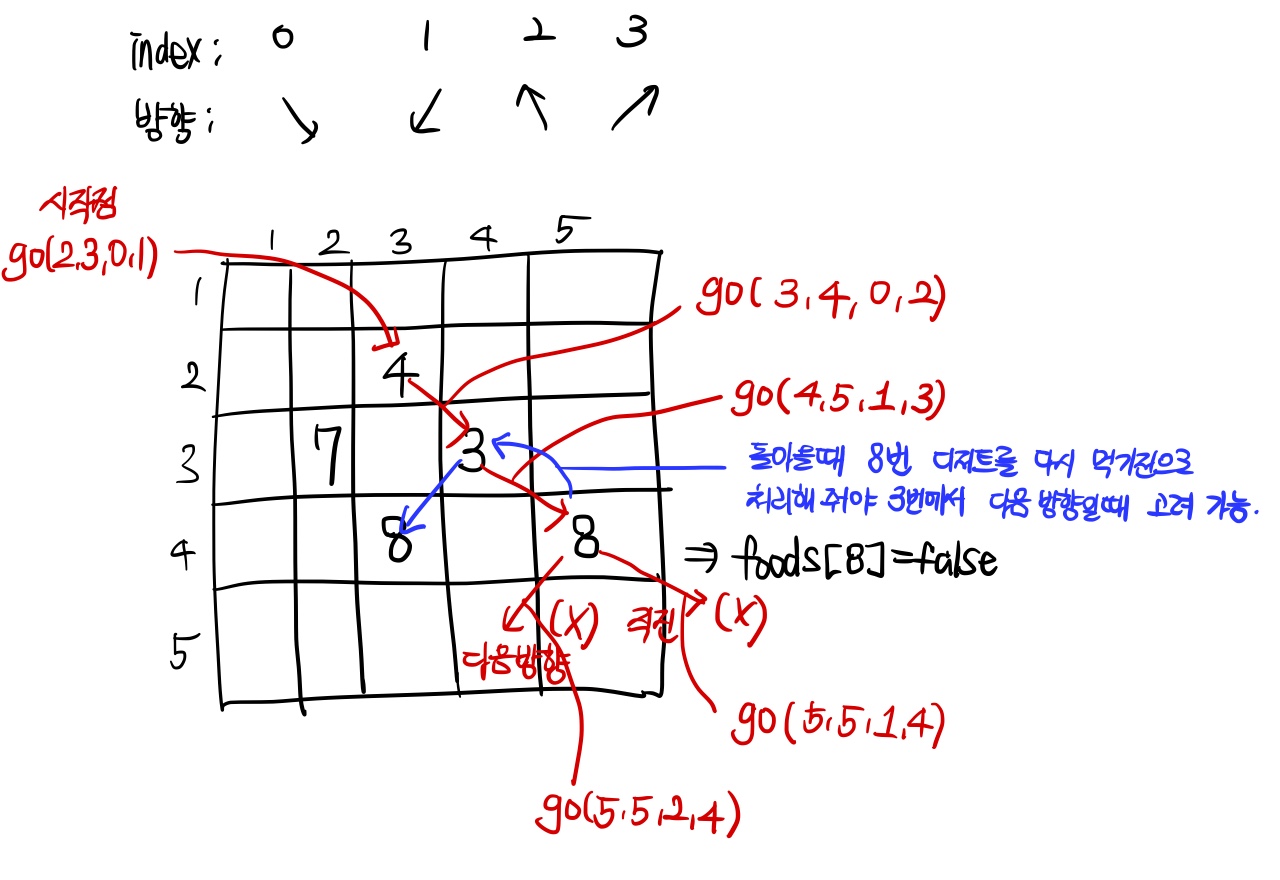 index: 0 1 2 3
방향: ↘ ↙ ↖ ↗
시작점
go(2,3,0,1)
1 2 3 4 5
1
go(3,4,0,2)
2 4
go(4,5,1,3)
3 7 3
돌아올때 8번 디저트를 다시 먹기전으로
처리해 줘야 3번에서 다음 방향일때 고려 가능.
4 8 8
⇒ foods[8]=false
(X) 직진 (X)
5
다음방향
go(5,5,1,4)
go(5,5,2,4)